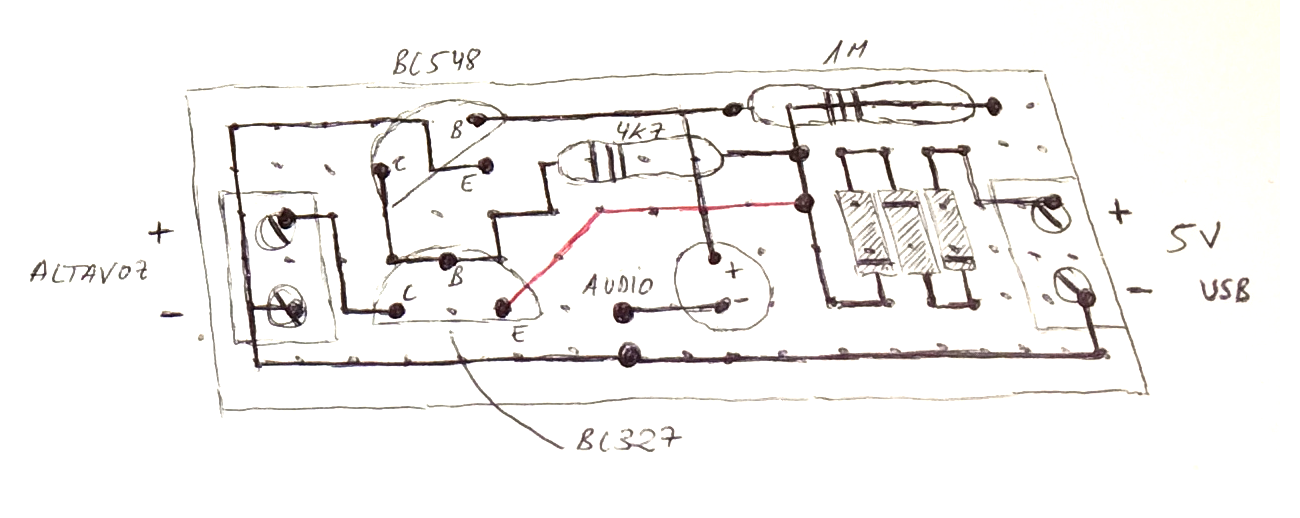 BC548
1M
B
4K7
C
E
+
+
5V
ALTAVOZ
B
+
C
AUDIO
-
-
USB
-
E
BC327